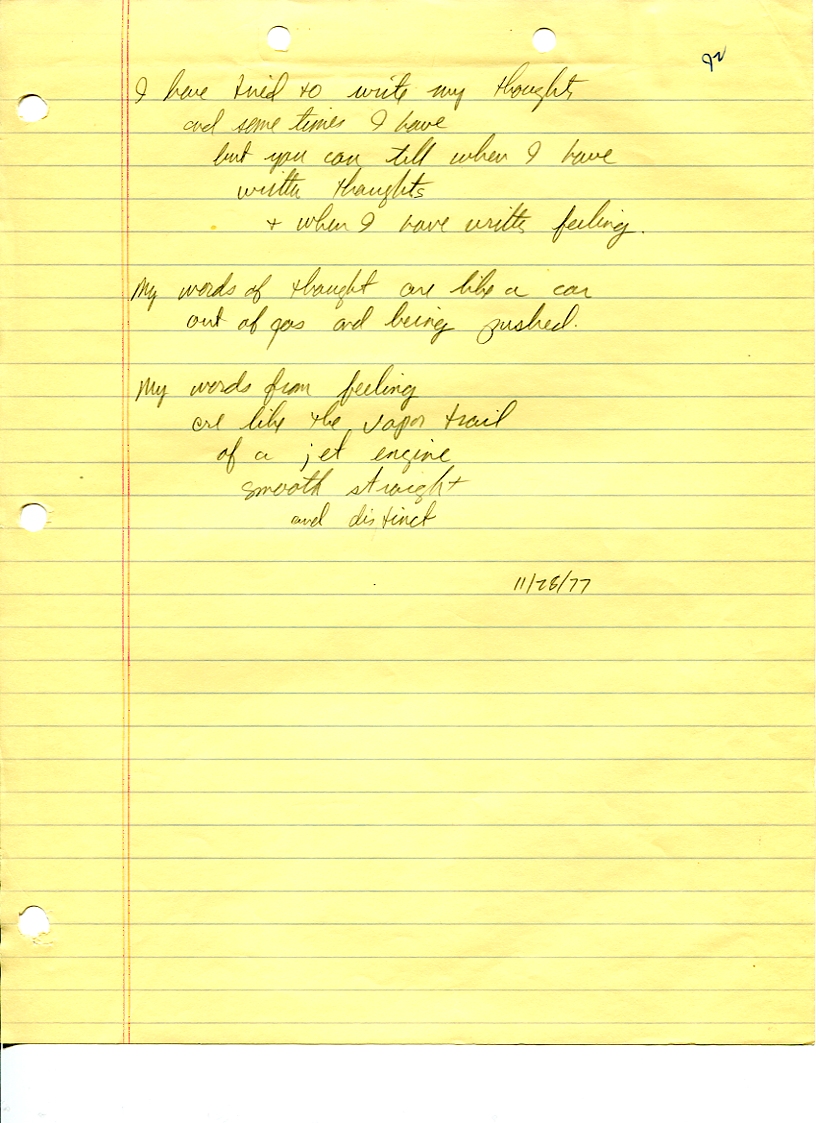 92
I have tried to write my thoughts
and some times I have
but you can tell when I have
written thoughts
+ when I have written feeling.
My words of thought are like a car
out of gas and being pushed.
My words from feeling
are like the vapor trail
of a jet engine
smooth straight
and distinct
11/28/77